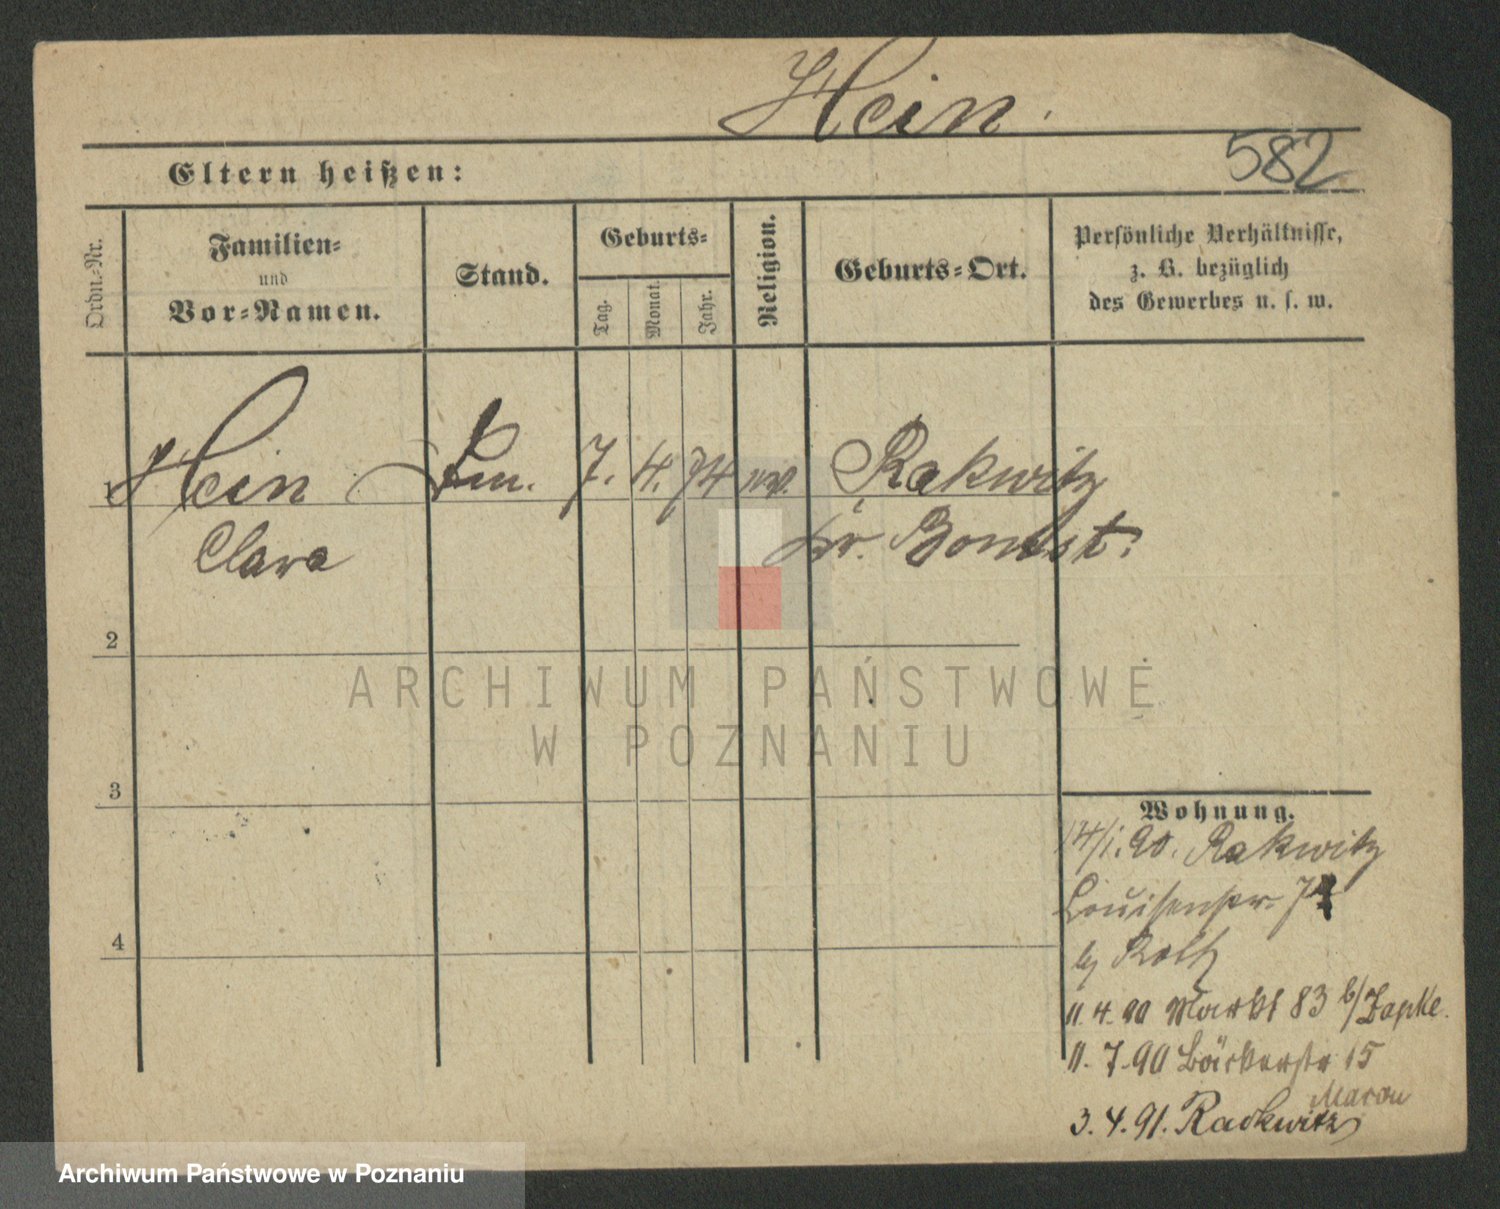 Hein.
582
Eltern heißen:
Ordn.-Nr.
Familien-
und
Vor-Namen.
Stand.
Geburts-
Tag.
Monat.
Jahr.
Religion.
Geburts-Ort.
Persönliche Verhältnisse,
z. B. bezüglich
des Gewerbes u. s. w.
1 Hein 7. 4. 74 ev. Rakwitz
Clara Kr. Bomst.
2
3
4
Wohnung.
14/1.90. Rakwitz
Louisenstr.
b/
11.4.90 Markt 83 b/Zapke.
11.7.90 Bäckerstr 15
3.4.91. Rackwitz
ARCHIWUM PAŃSTWOWE
W POZNANIU
Archiwum Państwowe w Poznaniu